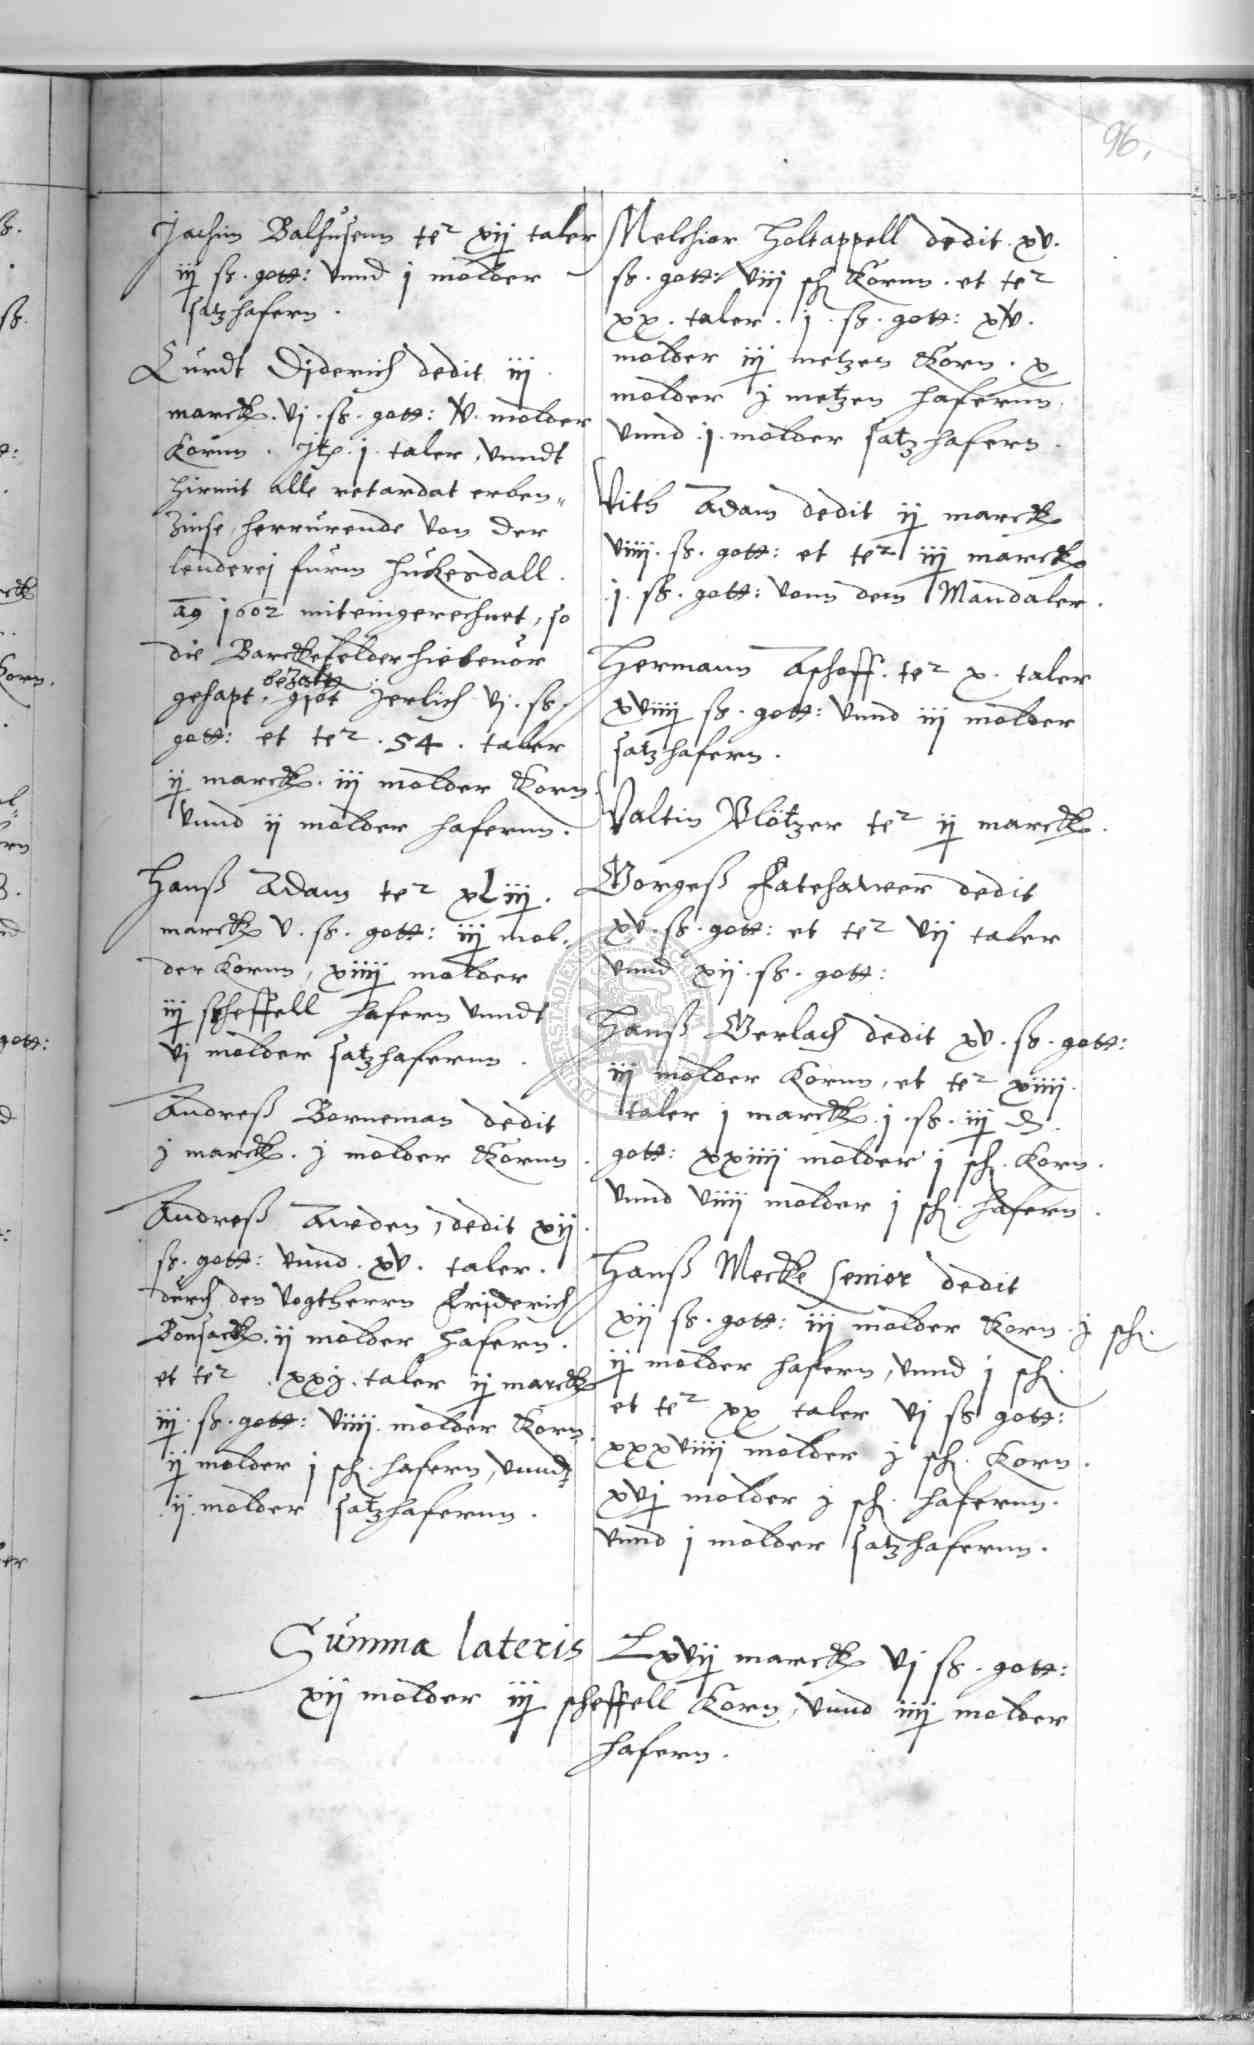 96.
Jachim Balhusenn te² xij taler
iij ß. gott: vnnd j molder
satzhafern.
Curdt Diderich dedit iij.
marck. vj. ß. gott: v. molder
Kornn. Jtz. j. taler, vnndt
hirmit alle retardat erben„
Zinse, herrurende von der
lenderej furm Hukesdall.
a͠o 1602 miteingerechnet, so
die Barckefelder hiebeuor
bezalt
gehapt, gibt Jerlich vj. ß.
gott: et te². 54. taler
ij marck. iij molder Korn
vnnd ij molder hafernn.
Hanß Adam te² xLiij.
marck v. ß. gott: iij mol„
der Kornn, xiiij molder
iij scheffell hafern vnndt
vj molder satzhafernn.
Andreß Borneman dedit
j marck. j molder Kornn.
Andreß Aweden, dedit xij.
ß. gott: vnnd. xv. taler.
durch den Vogtherrn Friderich
Bonsack. ij molder hafern.
et te². xxj. taler ij marck
iij. ß. gott: viiij. molder Korn.
ij molder j sch. hafern, vnndt
.ij. molder satzhafernn.
Melchior Holtappell dedit. xv.
ß. gott: viij sch Kornn. et te²
xx. taler. j. ß. gott: xv.
molder iij metzen Korn. x
molder j metzen hafernn.
vnnd. j. molder satzhafern.
Vith Adam dedit ij marck
viiij. ß. gott: et te² iij marck
.j. ß. gott: vonn dem Mandaler.
Hermann Aschoff. te² x. taler
xviiij ß. gott: vnnd iij molder
satzhafern.
Valtin Plötzer te² ij marck.
Gorgeß Fatehawer dedit
xv. ß. gott: et te² vij taler
vnnd xij. ß. gott:
Hanß Gerlach dedit xv. ß. gott:
iij molder Kornn, et te² xiiij.
taler j marck. j. ß. iij ₰.
gott: xxiiij molder j sch. Korn.
vnnd viiij molder j sch. hafern.
Hanß Mecke senior dedit
xij ß. gott: iij molder Korn. j sch.
ij molder hafern, vnnd j sch.
et te² xx taler vj ß gott:
xxxviiij molder j sch. Korn.
xvj molder j sch. hafernn.
vnnd j molder satzhafernn.
Summa lateris Lxvij marck vj ß. gott:
xij molder iij scheffell Korn, vnnd iiij molder
hafern.